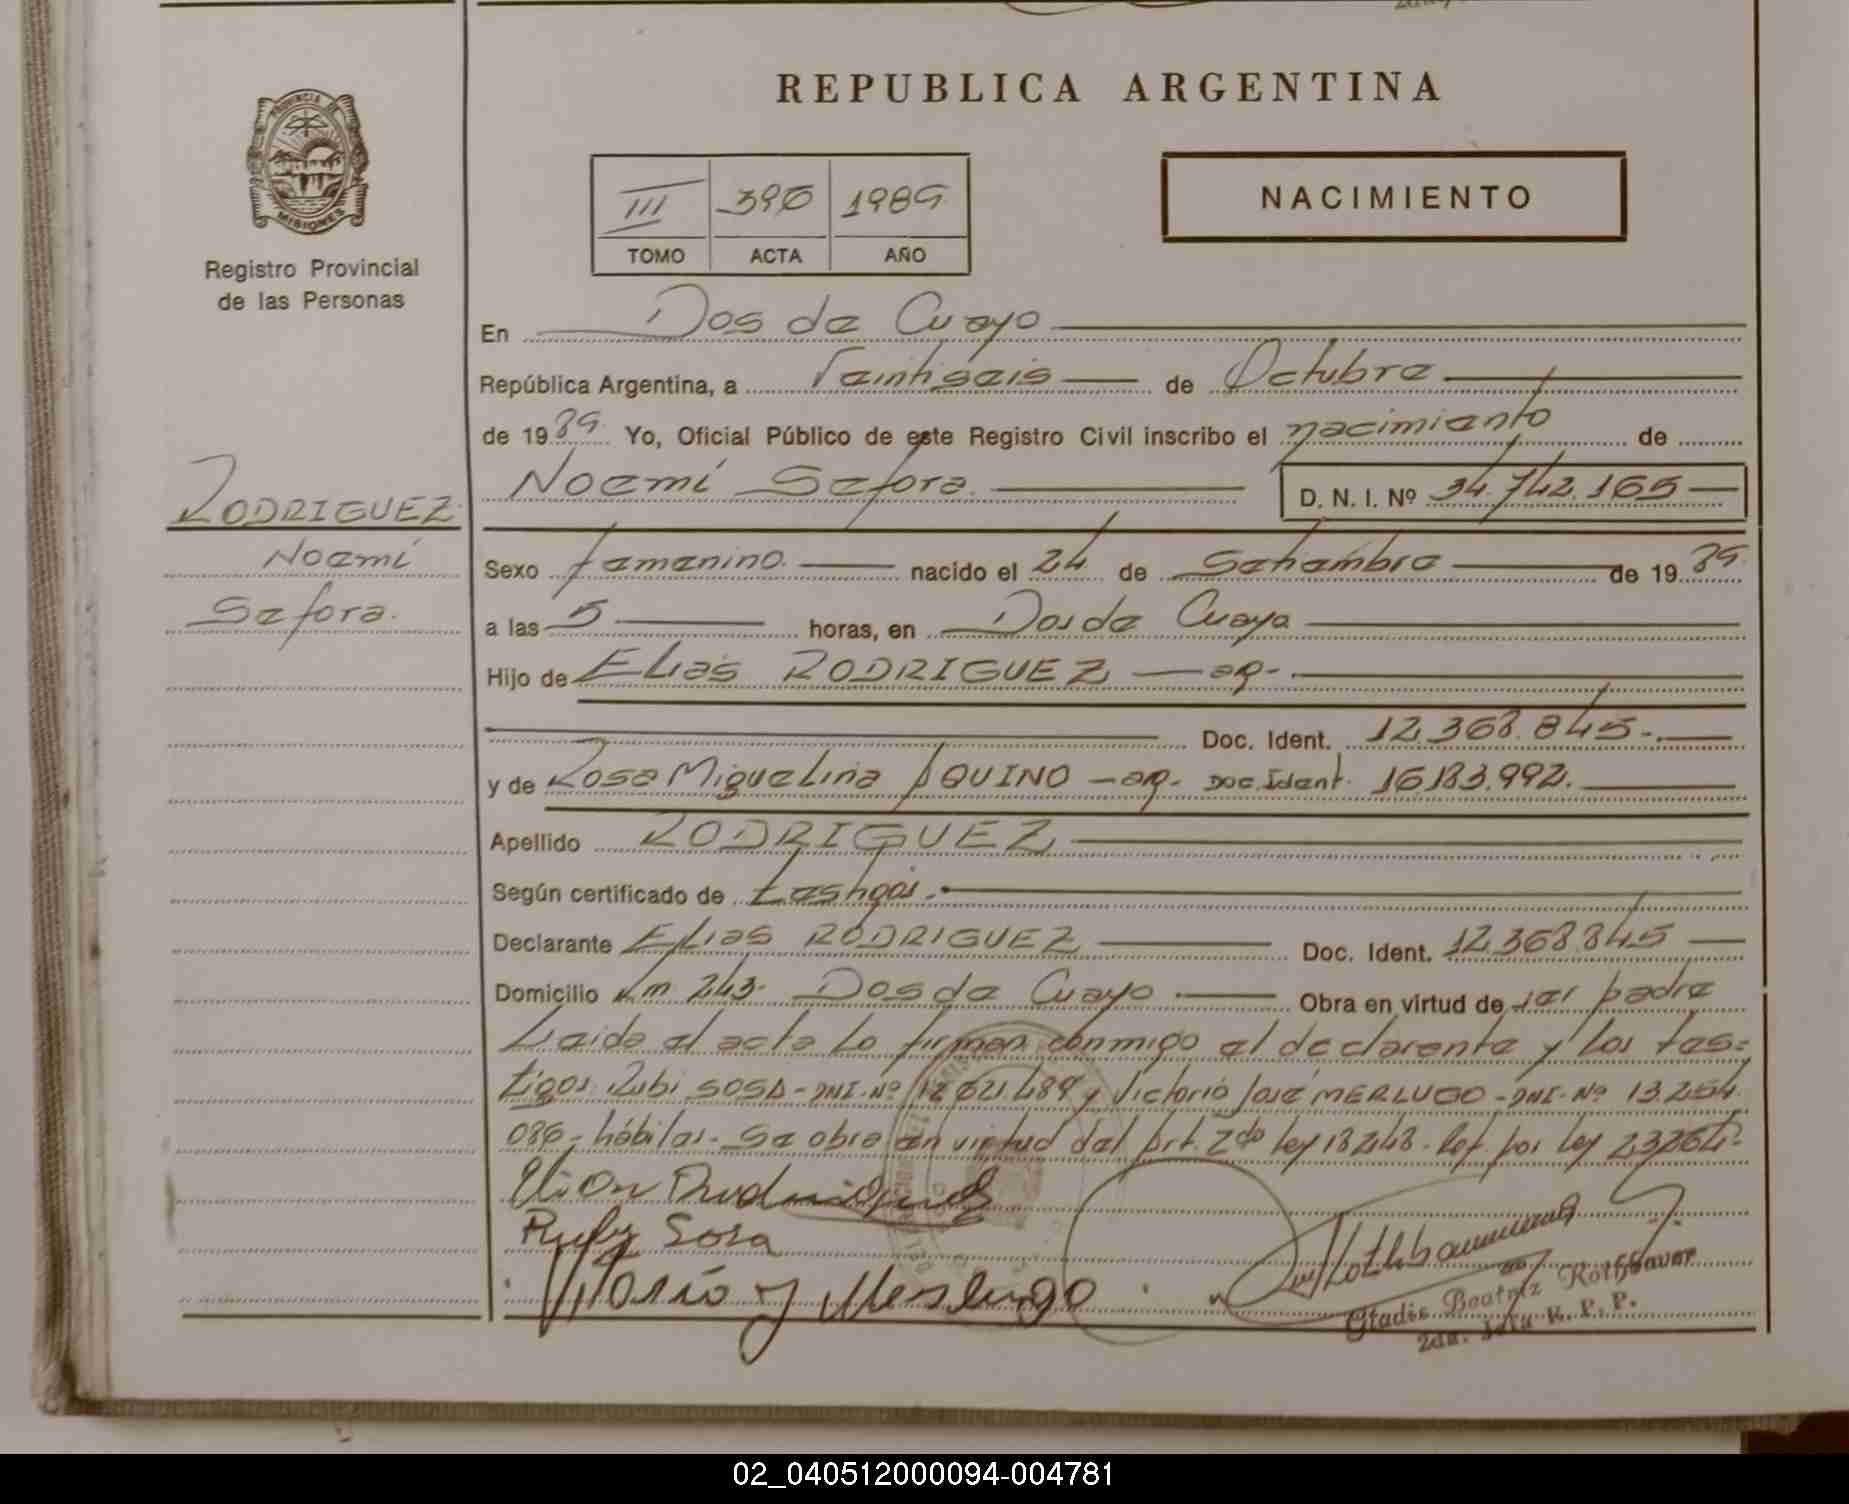 REPUBLICA ARGENTINA
PROVINCIA DE
MISIONES
Registro Provincial
de las Personas
III 390 1989
TOMO ACTA AÑO
NACIMIENTO
En Dos de Cuayo
República Argentina, a Veintiseis de Octubre
de 1989. Yo, Oficial Público de este Registro Civil inscribo el nacimiento de
Noemí Sefora. D. N. I. Nº 34.742.165
RODRIGUEZ
Noemí
Sefora.
Sexo femenino. nacido el 24 de Setiembre de 1989.
a las 5 horas, en Dos de Cuayo
Hijo de Elias RODRIGUEZ — ar.
Doc. Ident. 12.368.845.
y de Rosa Miguelina AQUINO — ar. Doc. Ident. 16183.992.
Apellido RODRIGUEZ
Según certificado de testigos.
Declarante Elias RODRIGUEZ Doc. Ident. 12.368.845
Domicilio Km 243. Dos de Cuayo Obra en virtud de ser padre
Leida el acta la firman conmigo el declarante y los tes=
tigos: Rubi SOSA - DNI. Nº 12621.489 y Victorio José MERLUGO - DNI. Nº 13.254.
086 - hábiles. Se obra en virtud del Art. 2do ley 18248. Ref. por ley 23264.
Ruby Sosa
Vitorio J Merlugo
Gladis Beatriz
2da. Jefa R. P. P.
02_040512000094-004781